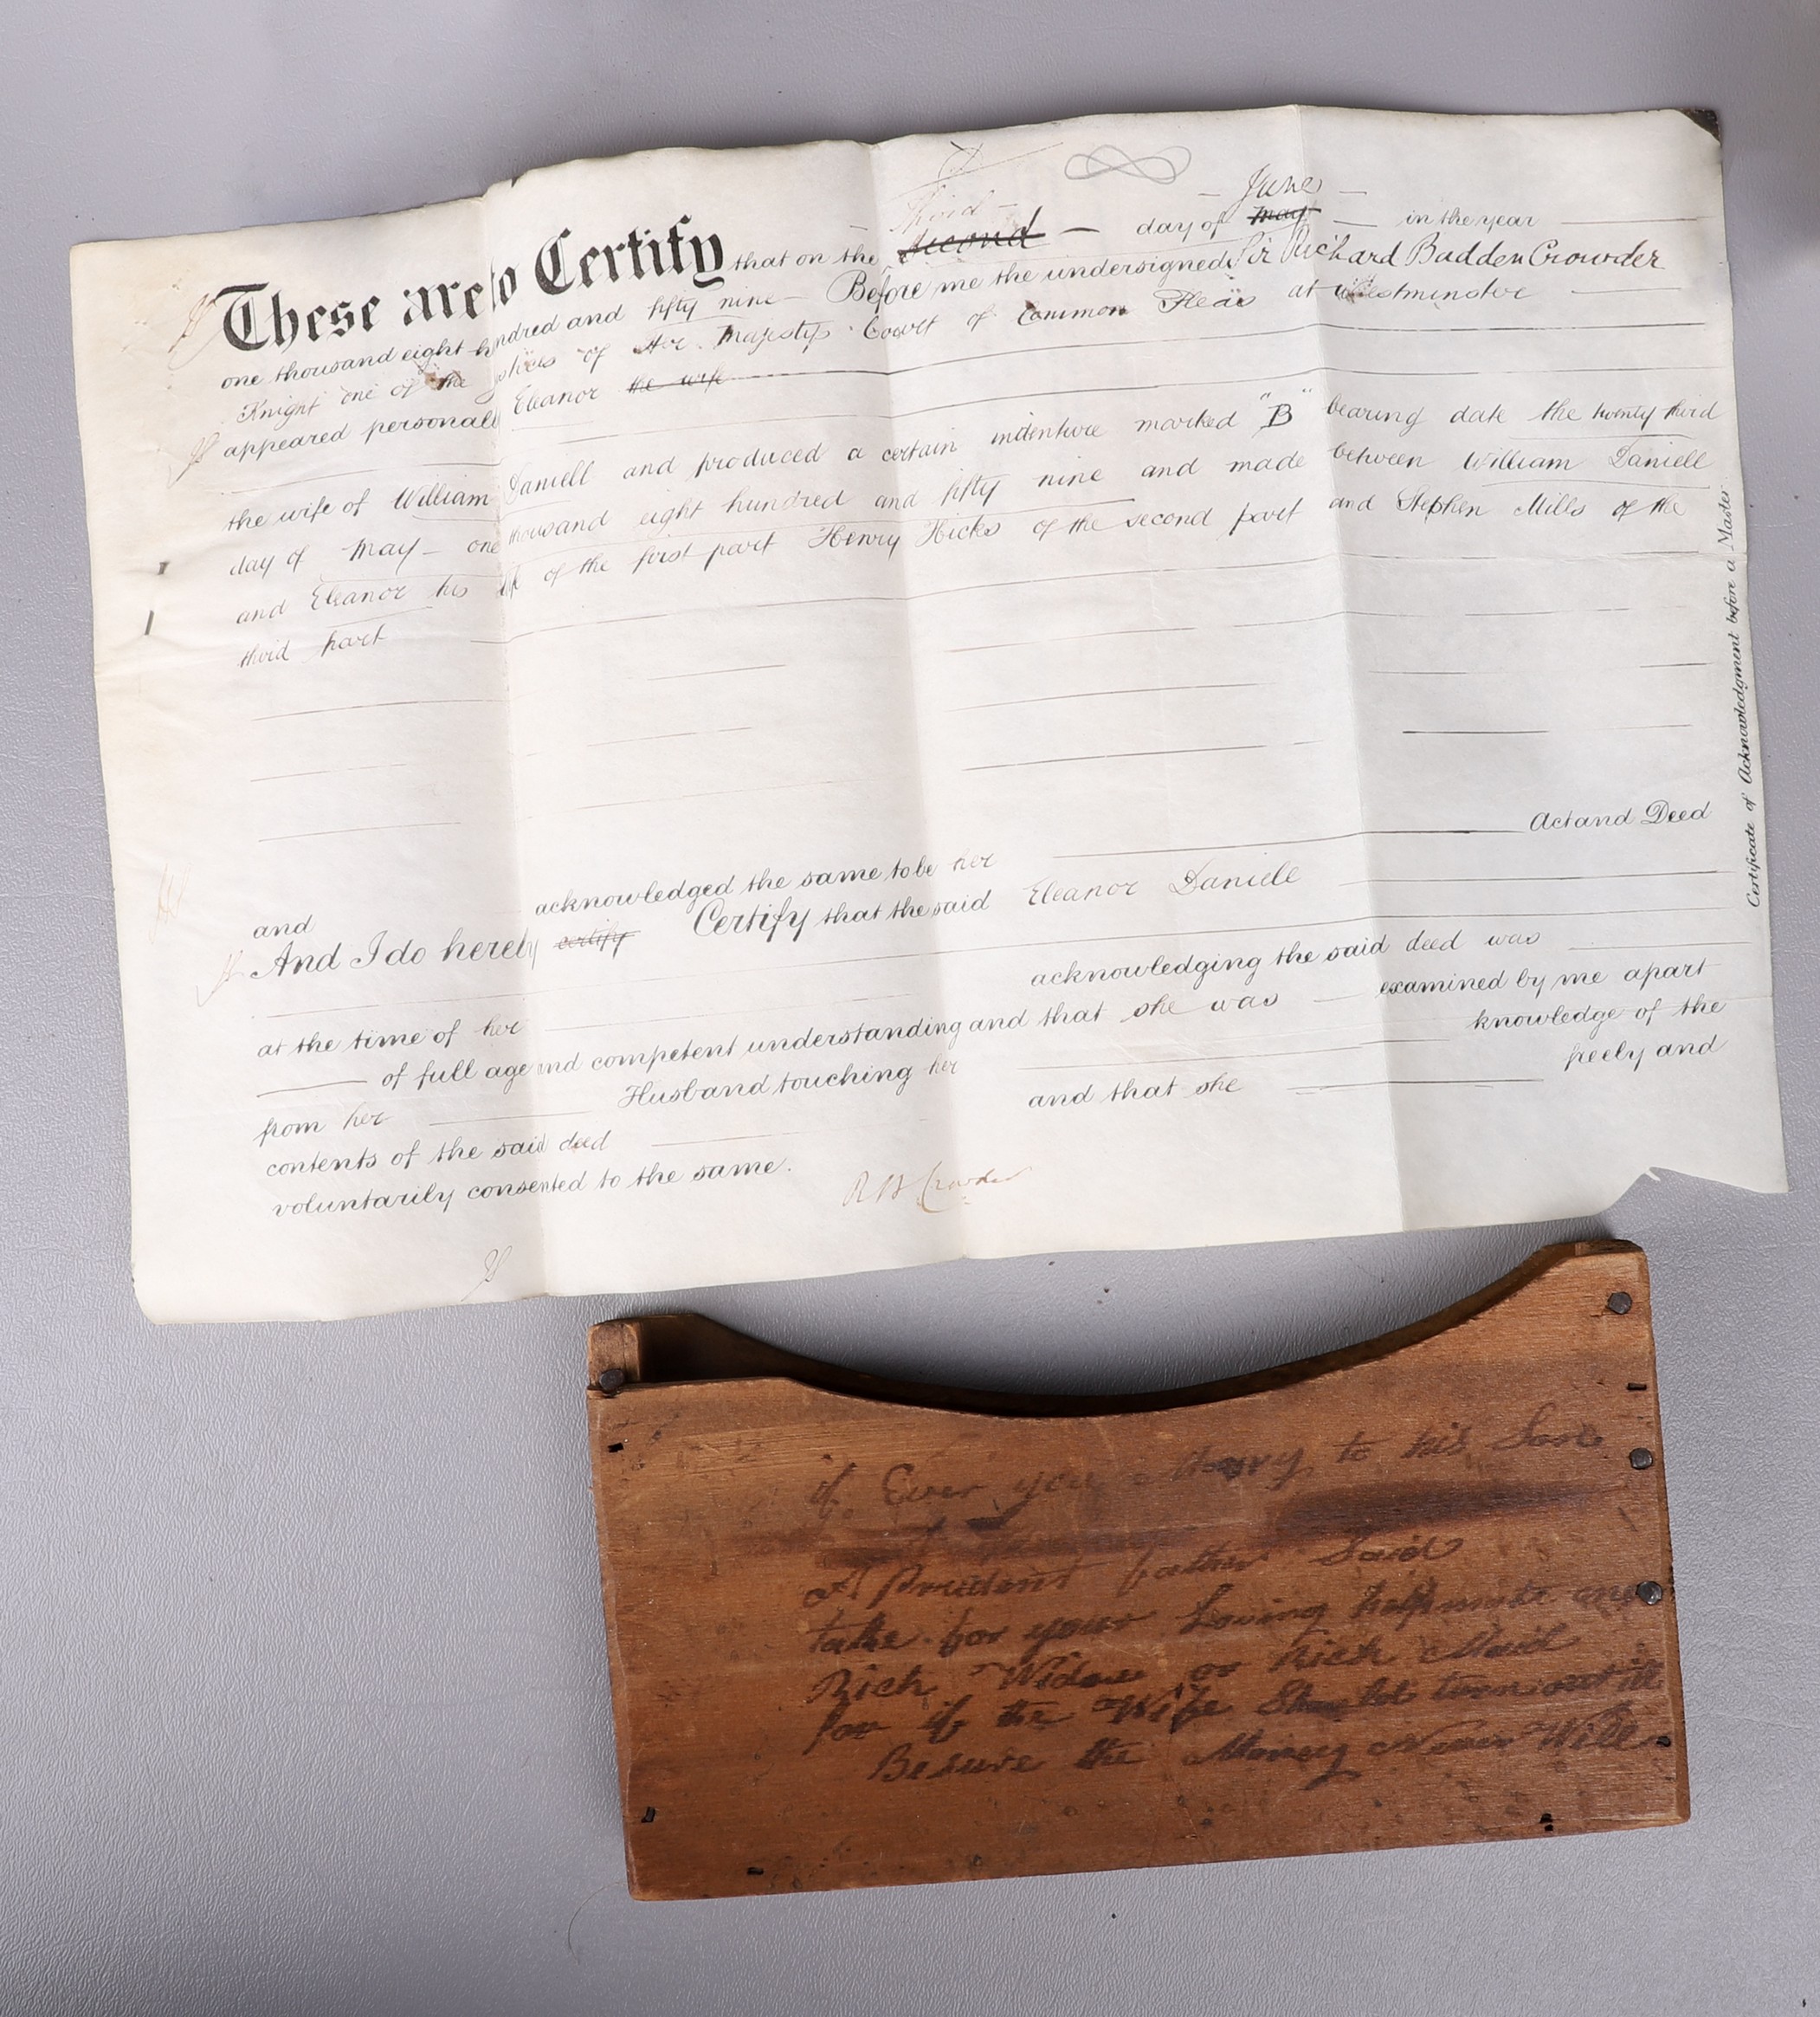 June
third
These are to Certify that on the second day of may in the year
one thousand eight hundred and fifty nine Before me the undersigned Sir Richard Budden Crowder
Knight one of the Justices of Her Majestys Court of Common Pleas at Westminster
appeared personally Eleanor the wife
the wife of William Daniell and produced a certain indenture marked "B" bearing date the twenty third
day of May one thousand eight hundred and fifty nine and made between William Daniell
and Eleanor his wife of the first part Henry Hicks of the second part and Stephen Mills of the
third part
and acknowledged the same to be her Act and Deed
And I do hereby certify Certify that the said Eleanor Daniell
at the time of her acknowledging the said deed was
of full age and competent understanding and that she was examined by me apart
from her Husband touching her knowledge of the
contents of the said deed and that she freely and
voluntarily consented to the same.
R B Crowder
Certificate of Acknowledgment before a Master
if Ever you Marry to his Son
A Prudent father Said
take for your Loving helpmate
Rich Widow or Rich Maid
for if the Wife Should turn out ill
Besure the Money Never Will